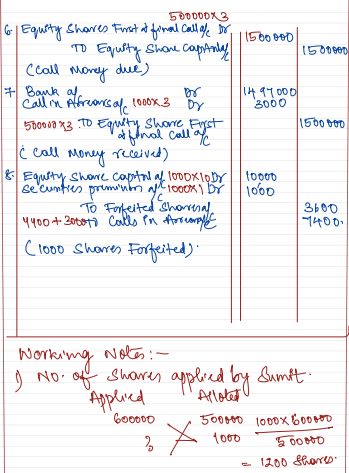 500000×3
6. Equity Shares First & final Call a/c Dr 1500000
To Equity Share capital a/c 1500000
(Call Money due)
7. Bank a/c Dr 1497000
Call in Arrears a/c 1000×3 Dr 3000
500000×3 To Equity Share First & final Call a/c 1500000
(Call Money received)
8. Equity Share capital a/c 1000×10 Dr 10000
Securities premium a/c 1000×1 Dr 1000
To Forfeited Shares a/c 3600
4400+3000 To Calls in Arrears a/c 7400
(1000 Shares Forfeited).
Working Notes:-
1) No. of Shares applied by Sumit.
Applied Alloted
600000 500000 1000×600000
? 1000 500000
= 1200 Shares.